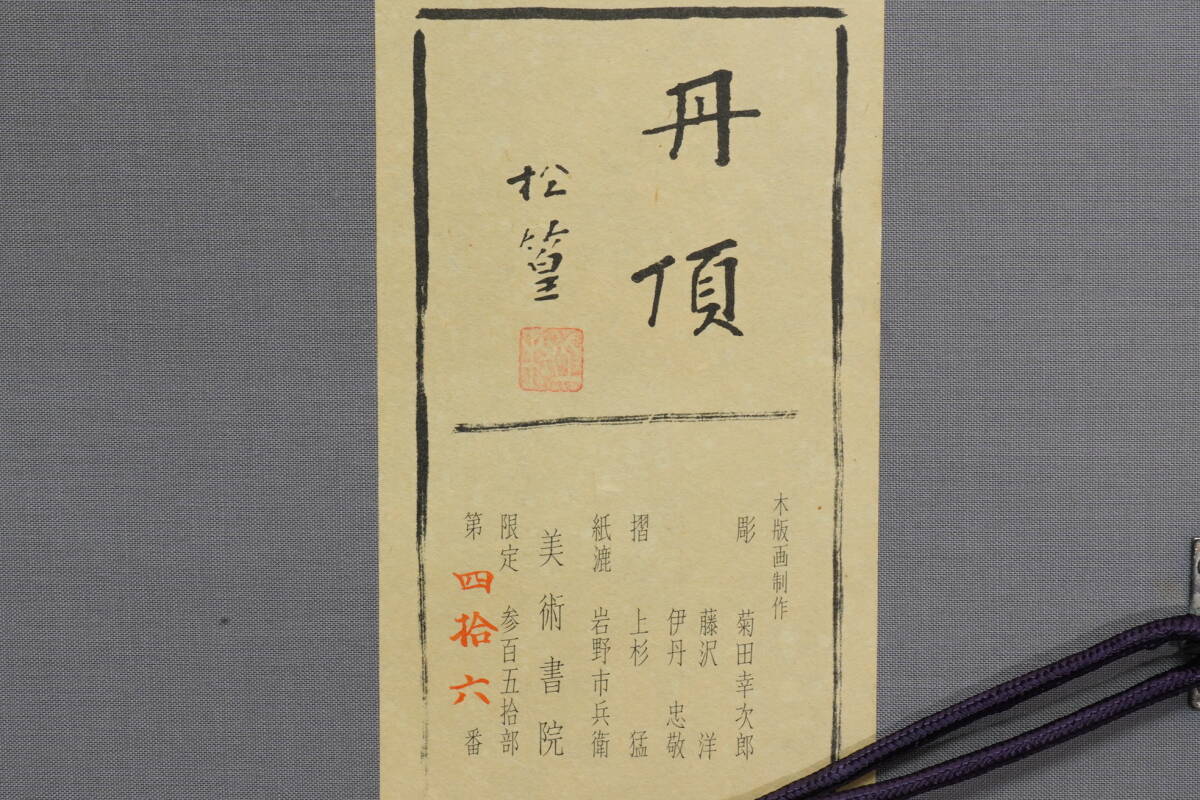 丹頂
松篁
木版画制作
彫 菊田幸次郎
藤沢 洋
伊丹 忠敬
摺 上杉 猛
紙漉 岩野市兵衛
美術書院
限定 参百五拾部
第 四拾六 番